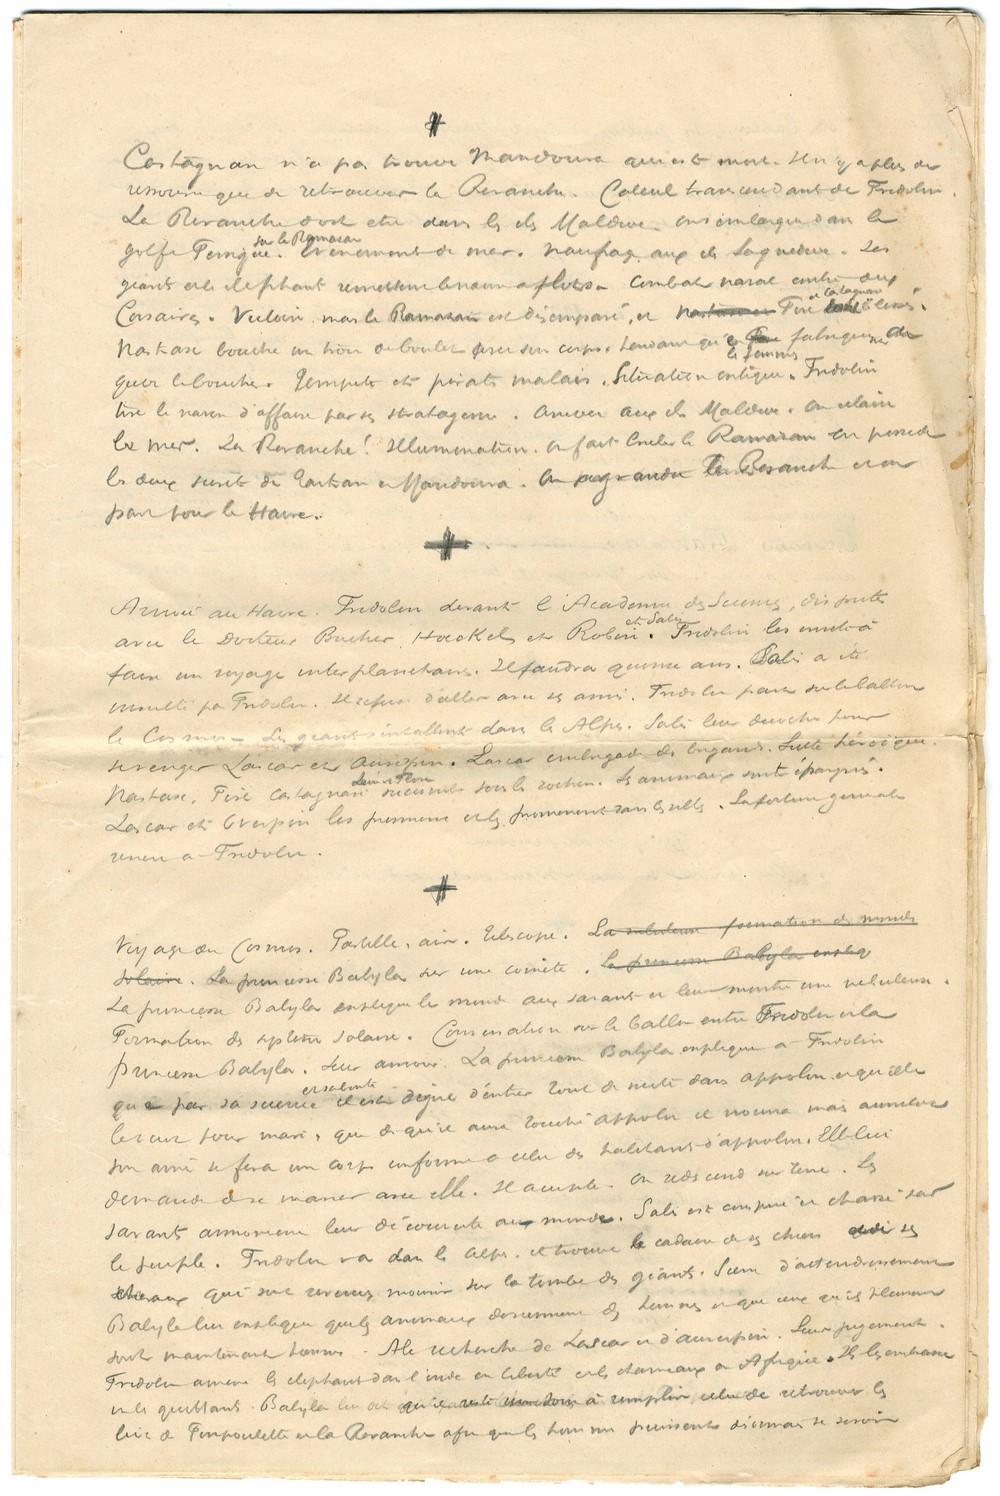 #
Castagnan n'a pas trouvé Mandoura qui est mort. Il n'y a plus de
ressource que de retrouver la Revanche. Calcul transcendant de Fridolin.
La Revanche doit être dans les îles Maldive. on s'embarque dans le
golfe Persique. sur le Ramasan Evenement de mer. Naufrage aux îles Laquedive. Les
géants et les elephants remettent le navire à flots. Combat naval entre deux
Corsaires. Victoire mais le Ramasan est désemparé, et Fire et Castagnan blessés.
Nastase bouche un trou de boulet avec son corps. tendant qu'on fabrique
quoi le boucher. les femmes Tempete et pirates malais. Situation critique. Fridolin
tire le navire d'affaire par ses stratageme. Arrivée aux îles Maldive. On éclaire
la mer. La Revanche! Illumination. On fait couler le Ramasan on possede
les deux secrets de et Mandoura. On la Revanche et on
part pour le Havre.
#
Arrivée au Havre. Fridolin devant l'Academie des Sciences, dispute
avec le Docteur Bucher Hoeckel et Robin et Sali. Fridolin les invite à
faire un voyage interplanetaire. Il faudra quinze ans. Sali a été
insulté par Fridolin. Il refuse d'aller avec ses amis. Fridolin part sur le ballon
le Cosmos. Les geants s'installent dans les Alpes. Sali leur pour
se venger Lascar et Auverpin. Lascar des brigands. Lutte héroïque.
Nastase, Fire Castagnan succombent sous les rochers. Les animaux sont épargnés.
Lascar et Overpin les prennent et les promenent dans les villes. La fortune
revient à Fridolin.
#
Voyage du Cosmos. Pastille, air. Telescope. La nebuleuse formation des mondes
solaire. La princesse Babyla sur une comète. La princesse Babyla expliq
La princesse Babyla explique le monde aux savants et leur montre une nebuleuse.
Formation des système solaire. Conversation sur le ballon entre Fridolin et la
princesse Babyla. Leur amour. La princesse Babyla explique à Fridolin
que par sa science et sa bonté il est digne d'entrer tout de suite dans appolon et qu'elle
le veut pour mari, que dès qu'il aura touché appolon il mourra mais aussitot
son ame se fera un corps conforme à celui des habitants d'appolon. Elle lui
demande de se marier avec elle. Il accepte. On redescend sur terre. Les
savants annoncent leur découverte au monde. Sali est conspué et chassé par
le peuple. Fridolin va dans les Alpes. et trouve le cadavre de ses chiens et de ses
chevaux qui sont revenus mourir sur la tombe des géants. Scene d'attendrissement
Babyla lui explique que les animaux deviennent des hommes et que ceux qu'ils pleurent
sont maintenant hommes. A la recherche de Lascar et d'auverpin. Leur jugement.
Fridolin amene les elephants dans l'inde en liberté et les chameaux en Afrique. Ils les embrasse
en les quittant. Babyla lui dit qu'il reste à remplir, celui de retrouver les
de Poupoulette et la Revanche afin que les hommes puissent désormais se servir